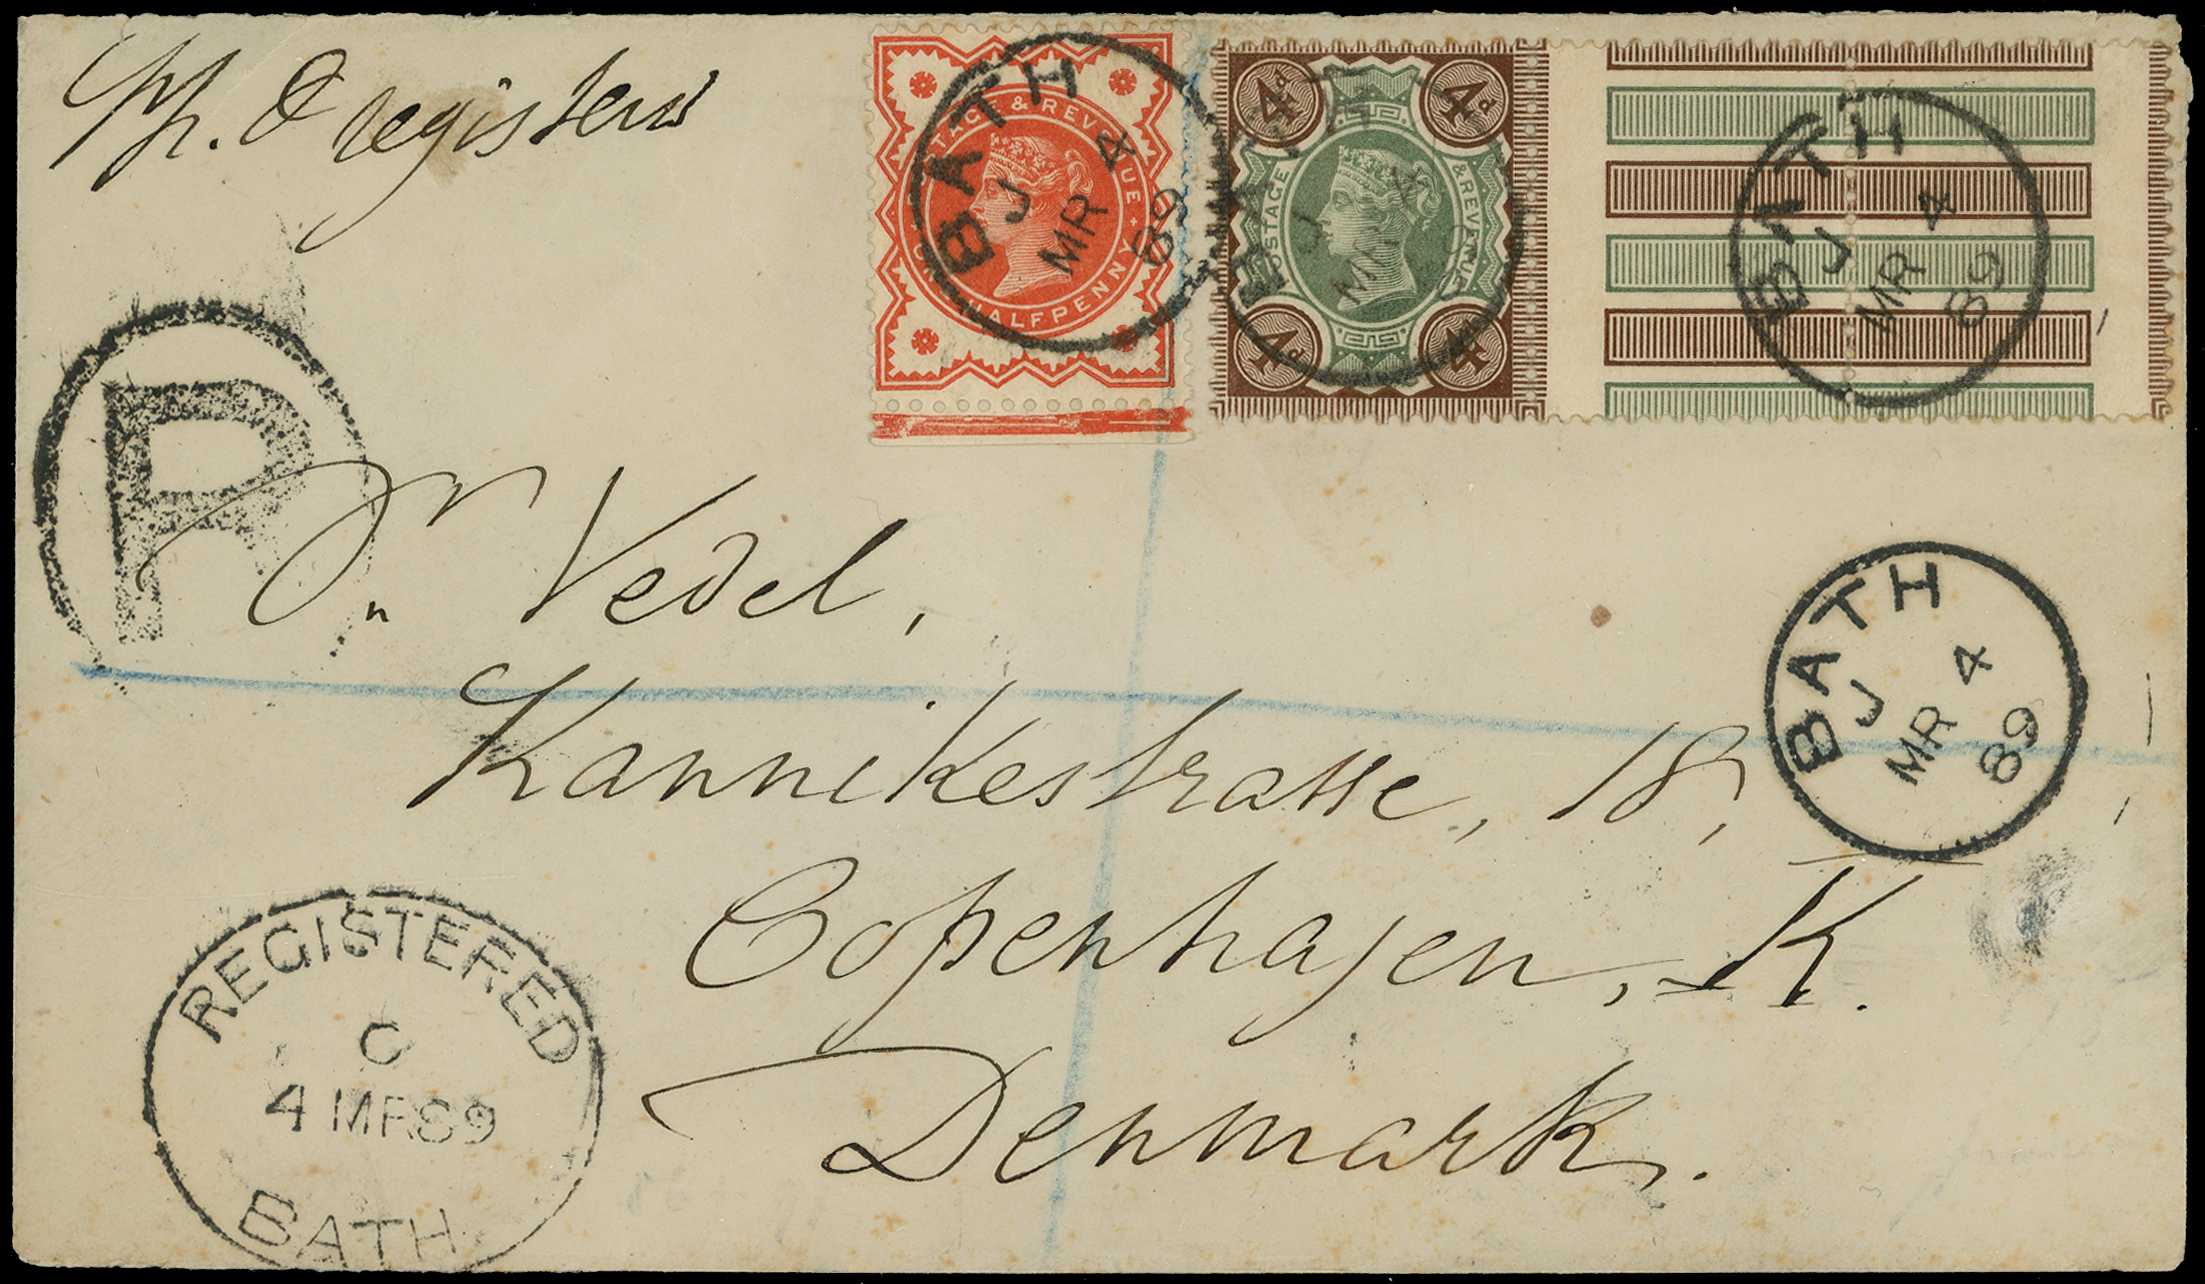 registered
POSTAGE & REVENUE
ONE HALFPENNY
BATH
J 4
MR
89
4d 4d
POSTAGE & REVENUE
4d 4d
BATH
J
MR
89
BATH
J 4
MR
89
R
Dr Vedel,
Kannikestrasse, 18,
Copenhagen, K.
Denmark.
BATH
J 4
MR
89
REGISTERED
C
4 MR 89
BATH